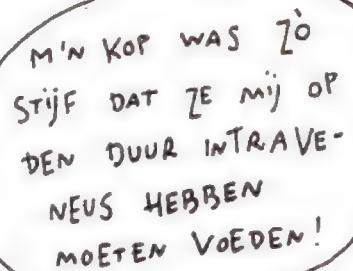 M'N KOP WAS ZÒ
STIJF DAT ZE MIJ OP
DEN DUUR INTRAVE-
NEUS HEBBEN
MOETEN VOEDEN!